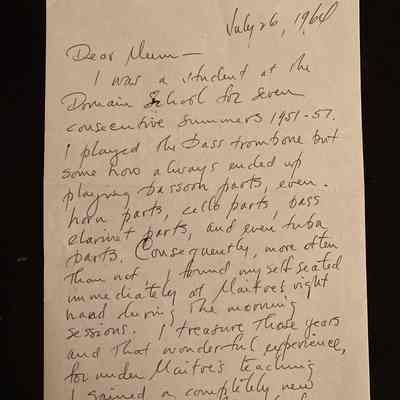 July 26, 1964
Dear Mum—
I was a student at the
Domain School for seven
consecutive summers 1951-57.
I played the bass trombone but
some how always ended up
playing bassoon parts, even
horn parts, cello parts, bass
clarinet parts, and even tuba
parts. Consequently, more often
than not I found myself seated
immediately at Maitre's right
hand during the morning
sessions. I treasure those years
and that wonderful experience,
for under Maitre's teaching
I gained a completely new